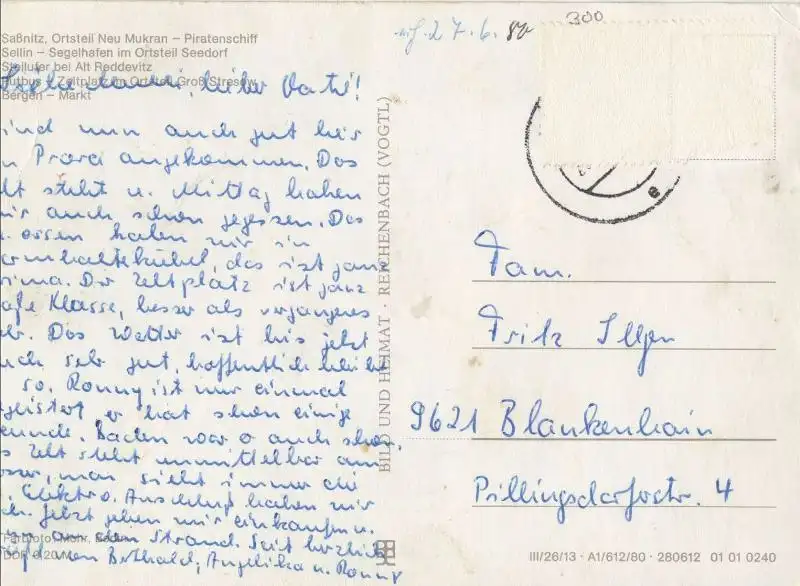 Saßnitz, Ortsteil Neu Mukran – Piratenschiff
Sellin – Segelhafen im Ortsteil Seedorf
Steilufer bei Alt Reddevitz
Putbus – Zeltplatz im Ortsteil Groß Stresow
Bergen – Markt
lieber Vati!
ind nun auch gut hier
n Prora angekommen. Das
lt steht u. Mittag haben
ir auch schon gegessen. Das
essen haben wir in
armhaltekübel, das ist ganz
rima. Der Zeltplatz ist ganz
Klasse, besser als vergangenes
hr. Das Wetter ist bis jetzt
uch sehr gut, hoffentlich bleibt
so. Ronny ist nur einmal
geistert er hat schon einige
eunde. Baden war o auch schon.
s Zelt steht unmittelbar am
sser, man sieht immer die
Elektro. Anschluß haben wir
ch. Jetzt gehen wir einkaufen u.
an den Strand. Seit herzlich
von Berthald, Angelika u. Ronny
Farbfoto: Mohr, Berlin
DDR 0,20 M
BILD UND HEIMAT · REICHENBACH (VOGTL)
27.6.80
300
Fam.
Fritz Illgen
9621 Blankenhain
Pillingsdorferstr. 4
III/26/13 · A1/612/80 · 280612 01 01 0240